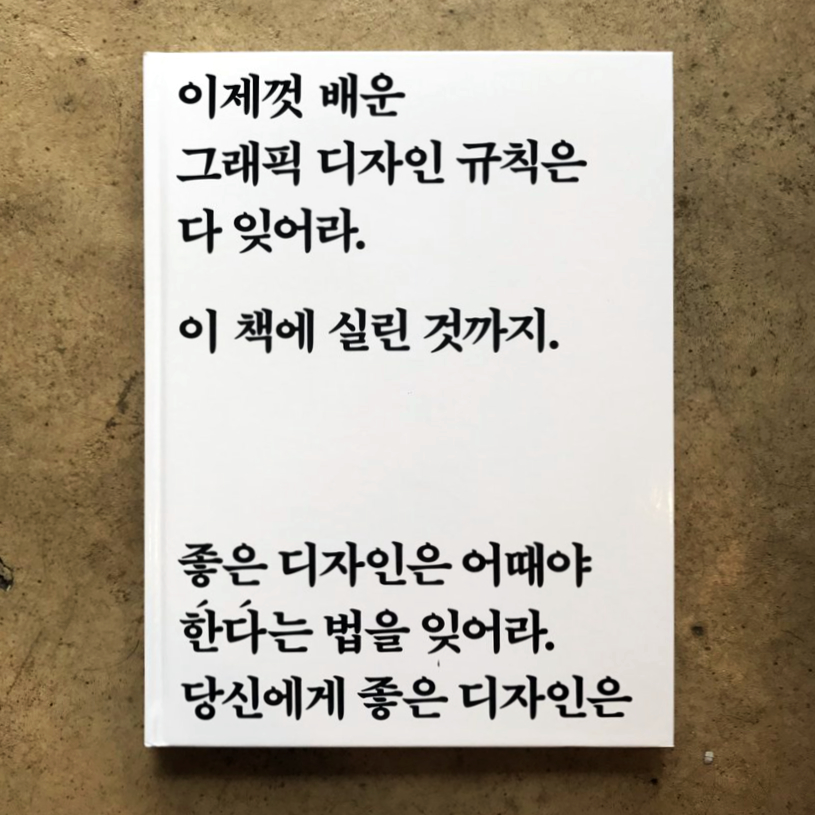 이제껏 배운
그래픽 디자인 규칙은
다 잊어라.
이 책에 실린 것까지.
좋은 디자인은 어때야
한다는 법을 잊어라.
당신에게 좋은 디자인은